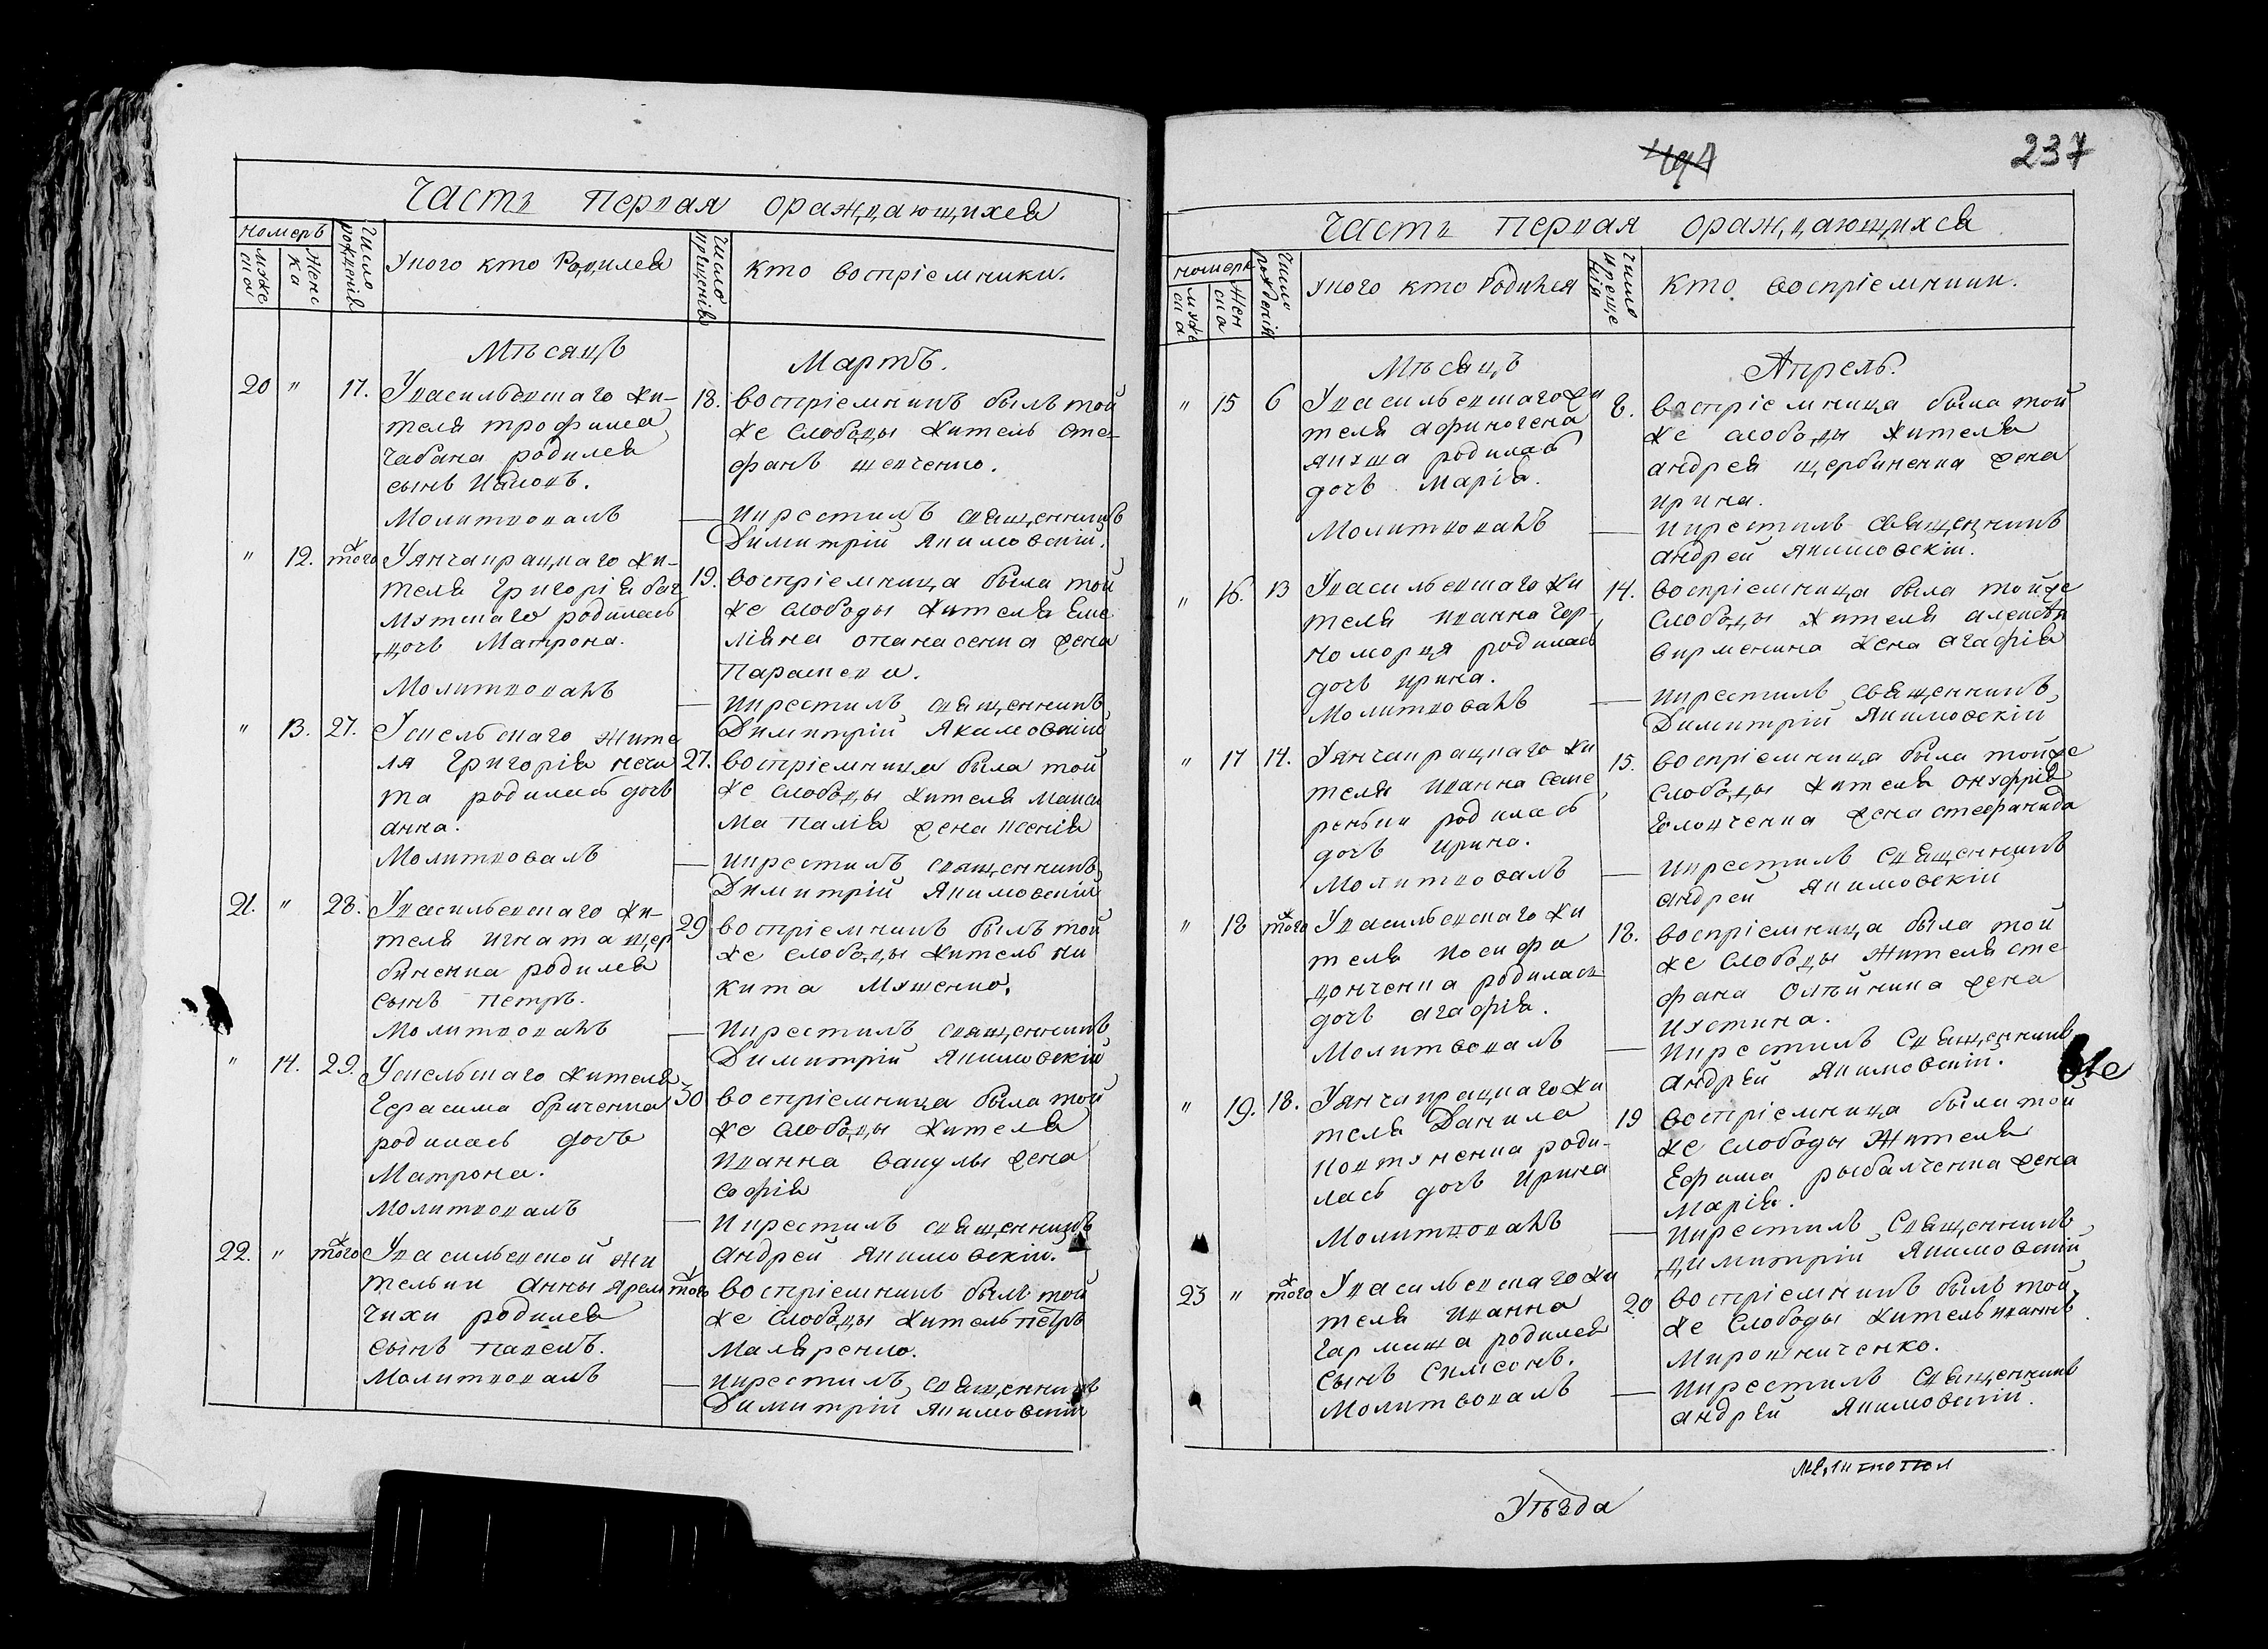 Часть Первая ораждающихся
номеръ
муже
ска
Женс
ка
Число
рожденія
Укого кто Родился
Число
крещенія
кто воспріемники.
Мѣсяцъ
Мартъ.
20 " 17. Увасильевскаго жи-
теля трофима
Чабана родился
сынъ Иаковъ.
Молитвовалъ
18. воспріемникъ былъ той
же слободы житель сте-
фанъ шевченко.
— икрестилъ священникъ
Димитрій Якимовскій.
" 12. того ж Уянчакракнаго жи-
теля Григорія
родилась
дочь Матрона.
Молитвовалъ
19. воспріемница была той
же слободы жителя Еме
ліяна опанасенка жена
Параскева.
— икрестилъ священникъ
Димитрій Якимовскій
" 13. 27. Жите
ля Григорія нечи
та родилась дочь
анна.
Молитвовалъ
27. воспріемница была той
же слободы жителя макси
ма палія жена ксенія
— икрестилъ священникъ
Димитрій Якимовскій
21. " 28. Увасильевскаго жи-
теля игната щер
биненка родился
сынъ петръ.
Молитвовалъ
29 воспріемникъ былъ той
же слободы житель ни
кита
— икрестилъ священникъ
Димитрій Якимовскій
" 14. 29. жителя
Герасима бриченка
родилась дочь
Матрона.
молитвовалъ
30 воспріемница была той
же слободы жителя
иванна вакулы жена
софія
— икрестилъ священникъ
андрей якимовскій.
22. " того ж Увасильевской жи
тельки анны яреми
чихи родился
сынъ павелъ.
Молитвовалъ
того ж воспріемникъ былъ той
же слободы житель петръ
Маляренко.
— икрестилъ священникъ
Димитрій якимовскій
237
Часть Первая ораждающихся
номеръ
муже
ска
Жен
ска
Число
рожденія
укого кто Родился
Число
креще
нія
Кто воспріемники.
Мѣсяцъ
Апрель.
" 15 6 Увасильевскаго жи
теля афиногена
родилась
дочь Марія.
Молитвовалъ
воспріемница была той
же слободы жителя
андрея щербиненка жена
ирина.
— икрестилъ священникъ
андрей якимовскій.
" 16. 13 Увасильевскаго жи
теля иванна чер-
номорца родилась
дочь ирина.
Молитвовалъ
14. воспріемница была той же
слободы жителя алексѣя
жена агафія
— икрестилъ священникъ
Димитрій якимовскій
" 17 14. Уянчакракнаго жи
теля иванна семе
реньки родилась
дочь ирина.
Молитвовалъ
15. воспріемница была той же
слободы жителя онуфрія
жена стефанида
— икрестилъ священникъ
андрей якимовскій
" 18 того ж Увасильевскаго жи
теля иосифа
донченка родилась
дочь агафія.
Молитвовалъ
18. воспріемница была той
же слободы жителя сте
фана олѣйника жена
иустина.
— икрестилъ священникъ
андрей якимовскій.
" 19. 18. Уянчакракнаго жи
теля Данила
ковтуненка роди-
лась дочь ирина
Молитвовалъ
19 воспріемница была той
же слободы жителя
Ефима рыбалченка жена
Марія.
— икрестилъ священникъ
димитрій якимовскій
23 " того ж Увасильевскаго жи
теля иванна
гармаша родился
сынъ симеонъ.
Молитвовалъ
20 воспріемникъ былъ той
же слободы житель иваннъ
Мирошниченко.
— икрестилъ священникъ
андрей якимовскій.
Уѣзда